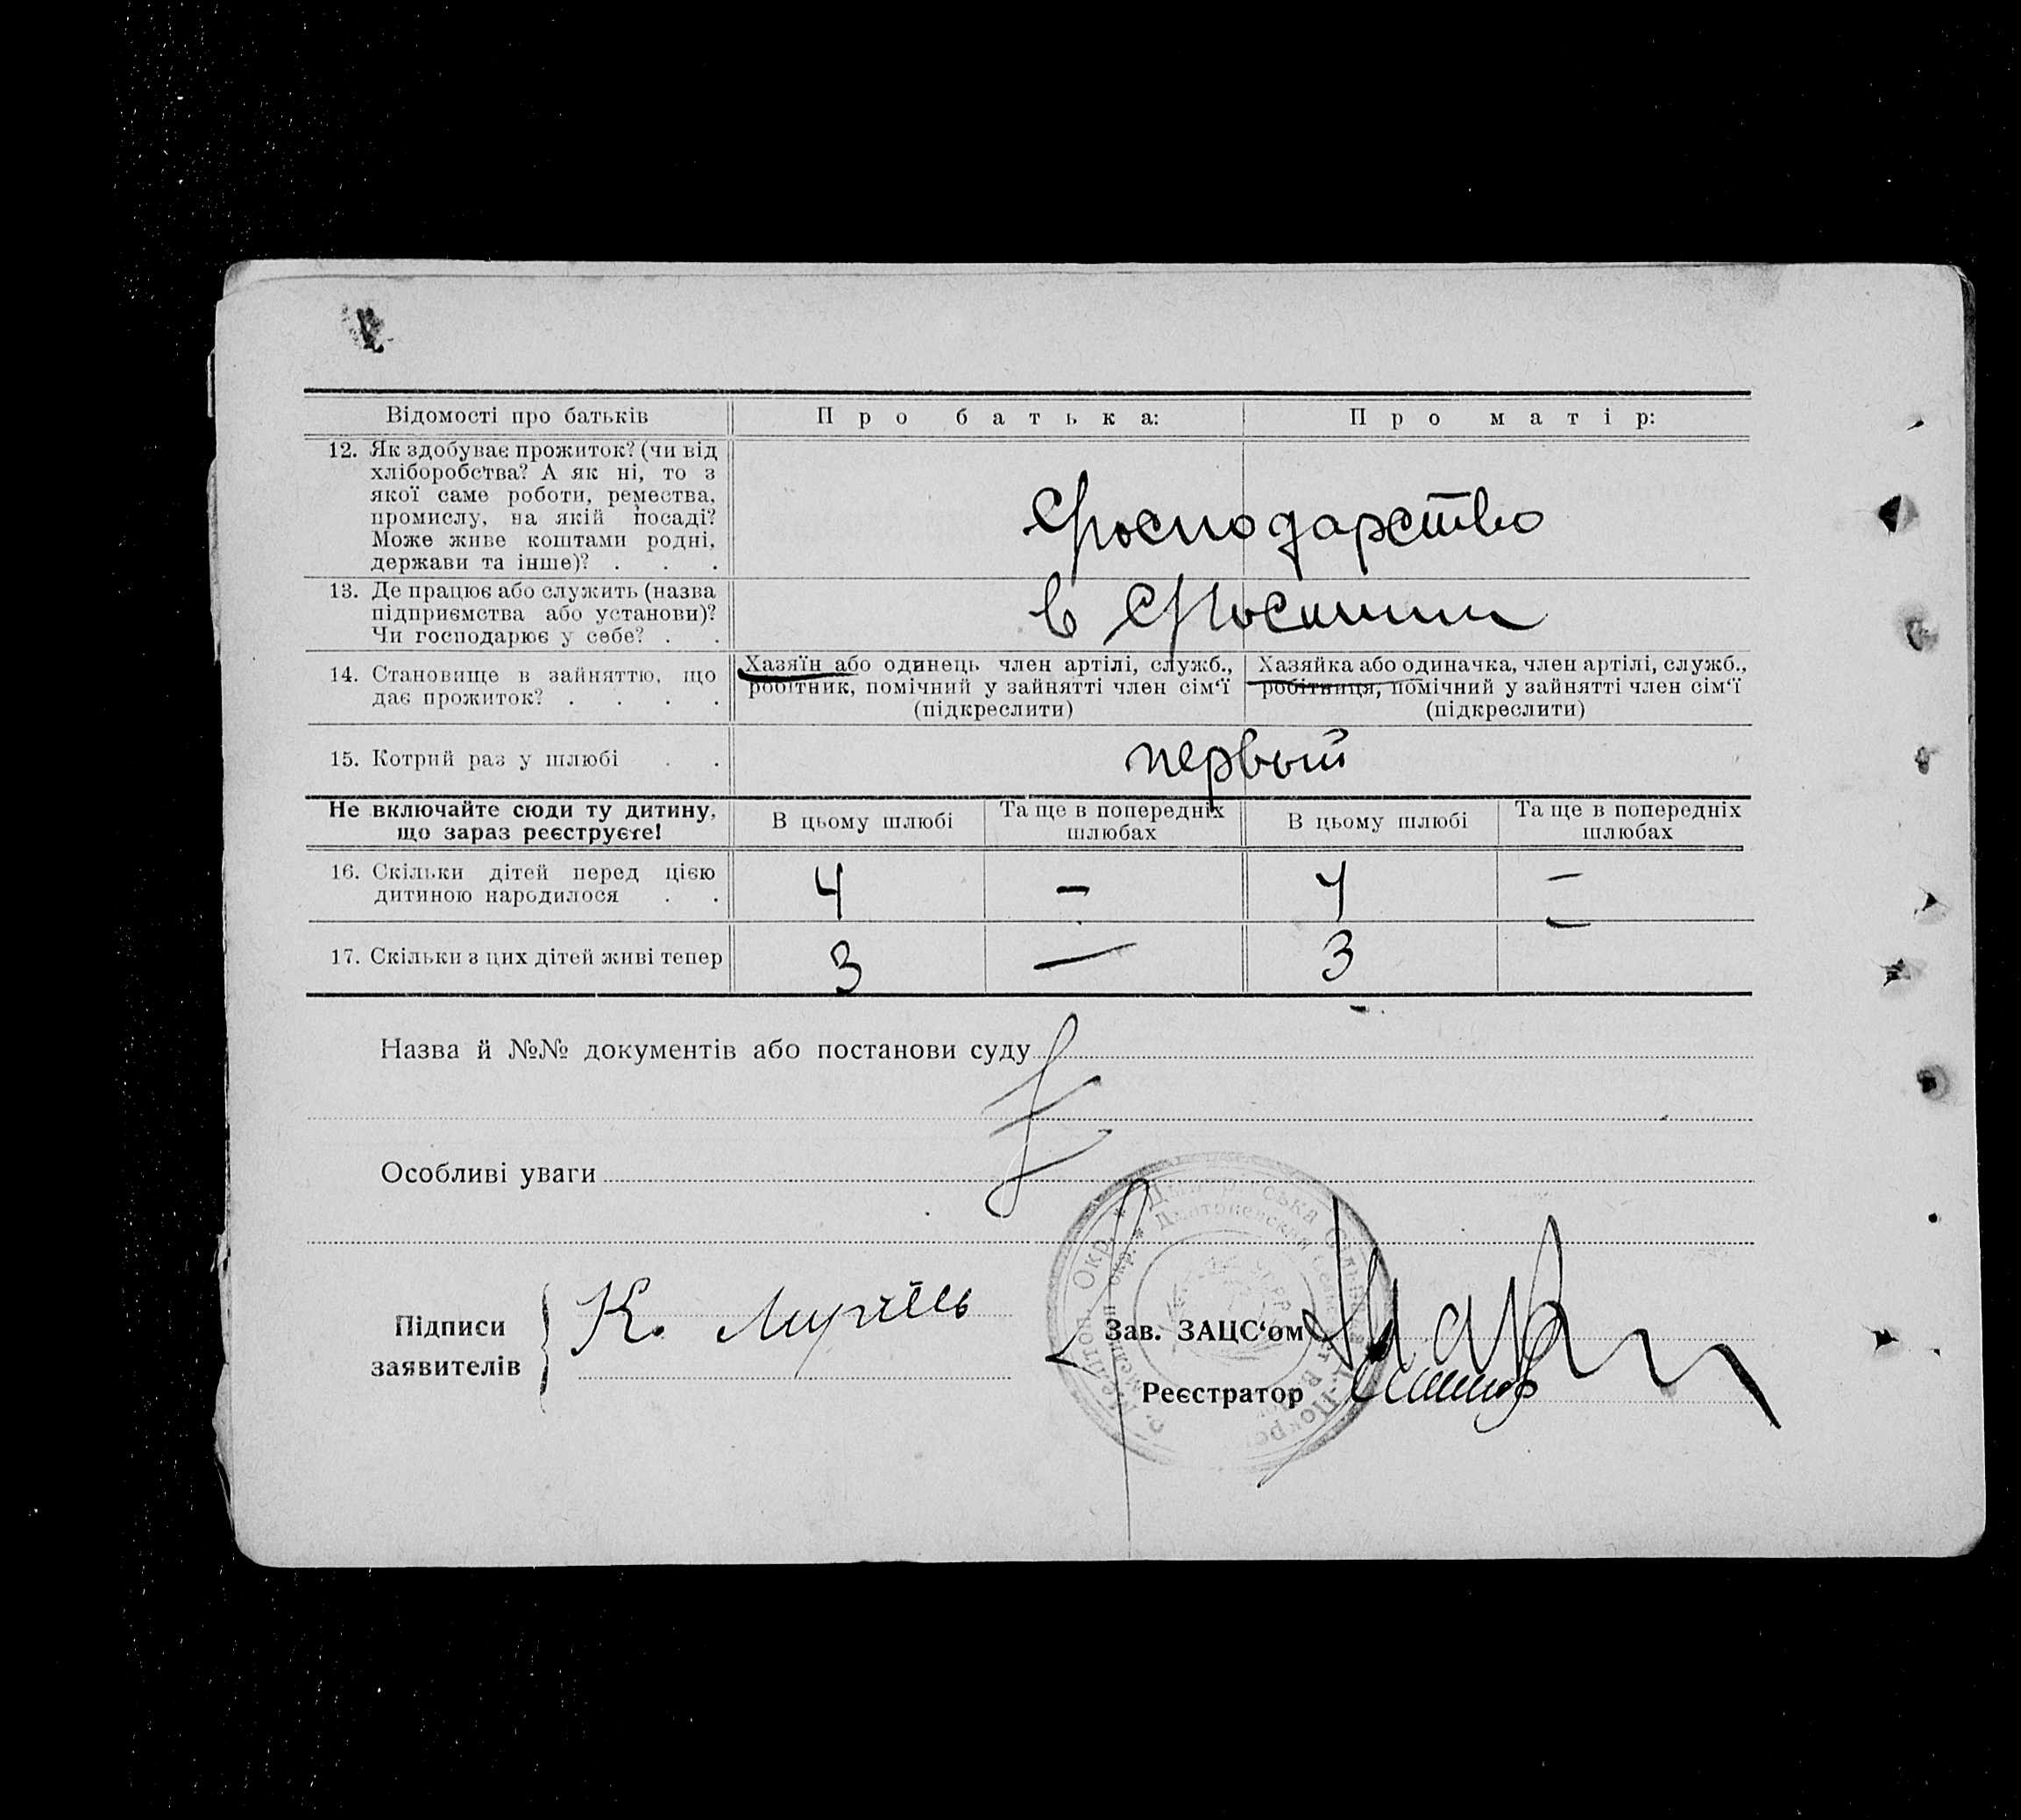 Відомості про батьків
Про батька:
Про матір:
12. Як здобуває прожиток? (чи від
хліборобства? А як ні, то з
якої саме роботи, ремества,
промислу, на якій посаді?
Може живе коштами родні,
держави та інше)? . . .
господарство
13. Де працює або служить (назва
підприємства або установи)?
Чи господарює у себе? . .
в
14. Становище в зайняттю, що
дає прожиток? . . . .
Хазяїн або одинець член артілі, служб.,
робітник, помічний у зайнятті член сім‘ї
(підкреслити)
Хазяйка або одиначка, член артілі, служб.,
робітниця, помічний у зайнятті член сім‘ї
(підкреслити)
15. Котрий раз у шлюбі . .
первый
Не включайте сюди ту дитину,
що зараз реєструєте!
В цьому шлюбі
Та ще в попередніх
шлюбах
В цьому шлюбі
Та ще в попередніх
шлюбах
16. Скільки дітей перед цією
дитиною народилося . .
4 — 4 —
17. Скільки з цих дітей живі тепер
3 — 3
Назва й №№ документів або постанови суду
Особливі уваги
Підписи
заявителів
К.
Зав. ЗАЦС‘ом
Реєстратор